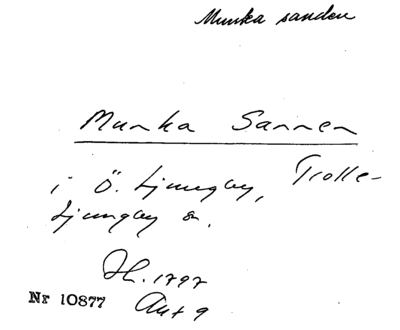 Munka sanden
Munka Sannen
i Ö. Ljungby, Trolle-
Ljungby sn.
Jh. 1797
Nr 10877 Akt 9